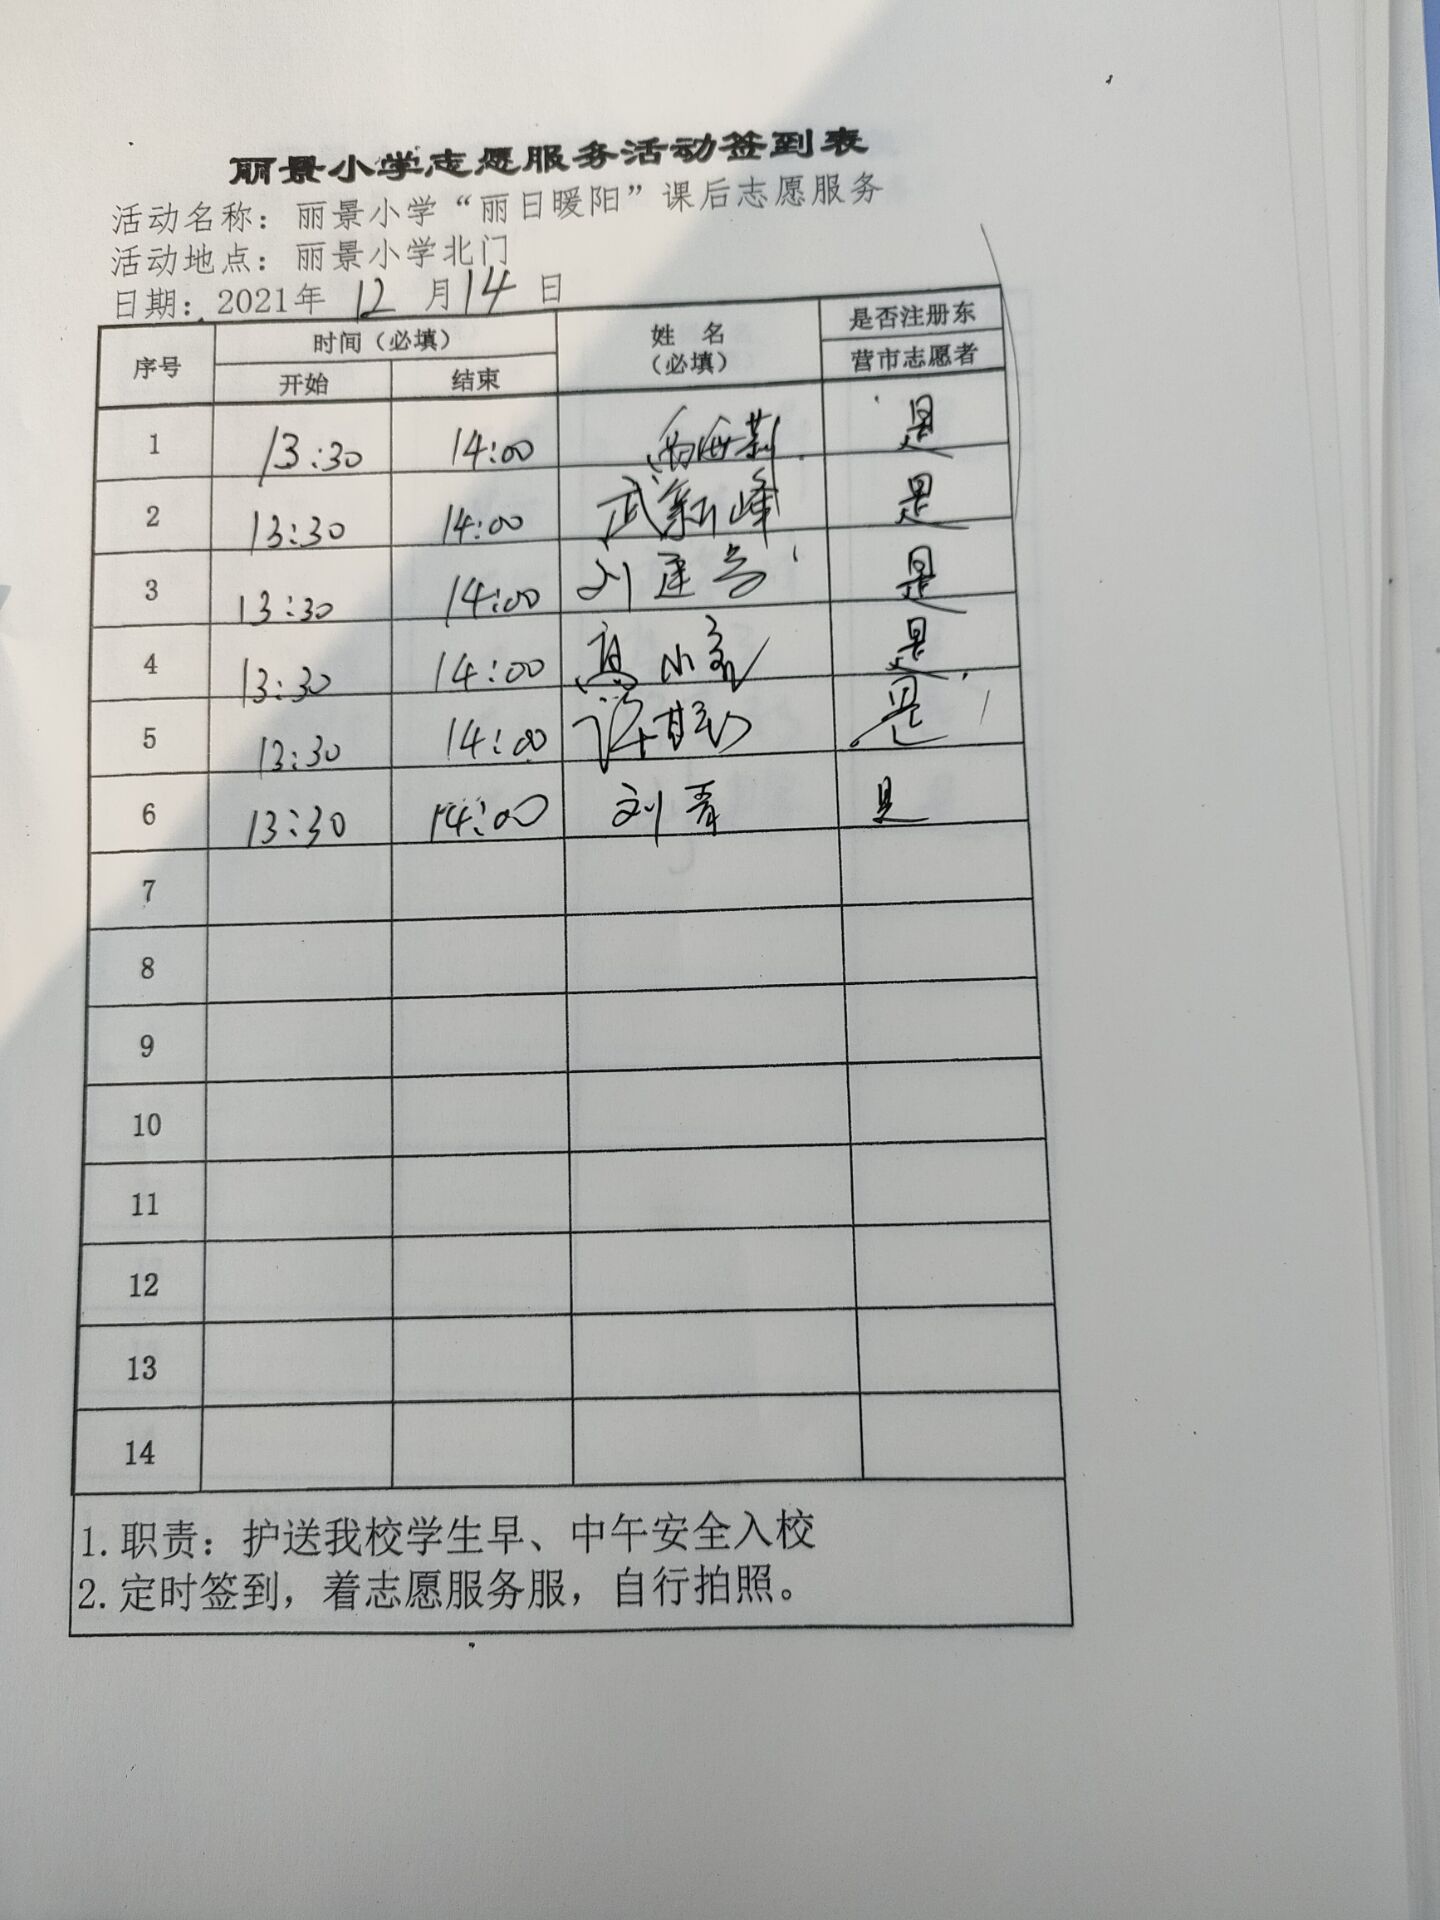 丽景小学志愿服务活动签到表
活动名称：丽景小学“丽日暖阳”课后志愿服务
活动地点：丽景小学北门
日期：2021年 12 月 14 日
序号 时间（必填） 姓 名 是否注册东
开始 结束 （必填） 营市志愿者
1 13:30 14:00 是
2 13:30 14:00 武新峰 是
3 13:30 14:00 刘 是
4 13:30 14:00 高小 是
5 13:30 14:00 许 是
6 13:30 14:00 刘青 是
7
8
9
10
11
12
13
14
1.职责：护送我校学生早、中午安全入校
2.定时签到，着志愿服务服，自行拍照。